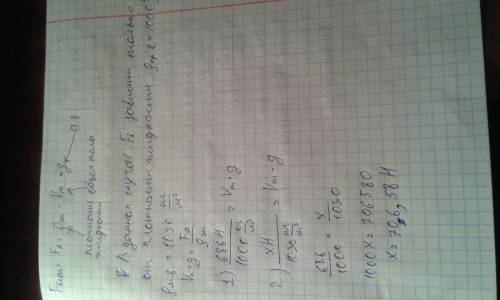 Fвыт = FА = ρж · Vт · gк — 9,8
плотность объём тела
жидкости
В данном случае FА зависит только
от плотности жидкости ρпр.в = 1000
ρм.в. = 1030 кг/м³
Vт · g = FА/ρж
1) 686 Н / 1000 кг/м³ = Vт · g
2) xН / 1030 кг/м³ = Vт · g
686/1000 = x/1030
1000x = 706580
x = 706,58 Н